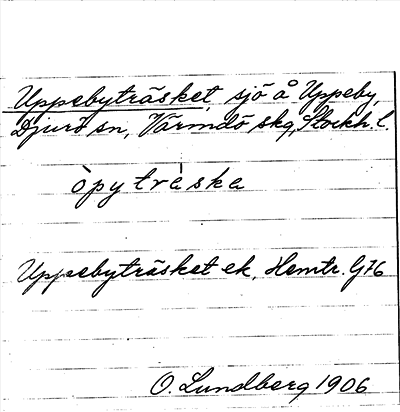 Uppebyträsket, sjö å Uppeby,
Djurö sn, Värmdö skg, Stockh. l.
òpytràska
Uppebyträsket ek. Hemtr. G76
O. Lundberg 1906